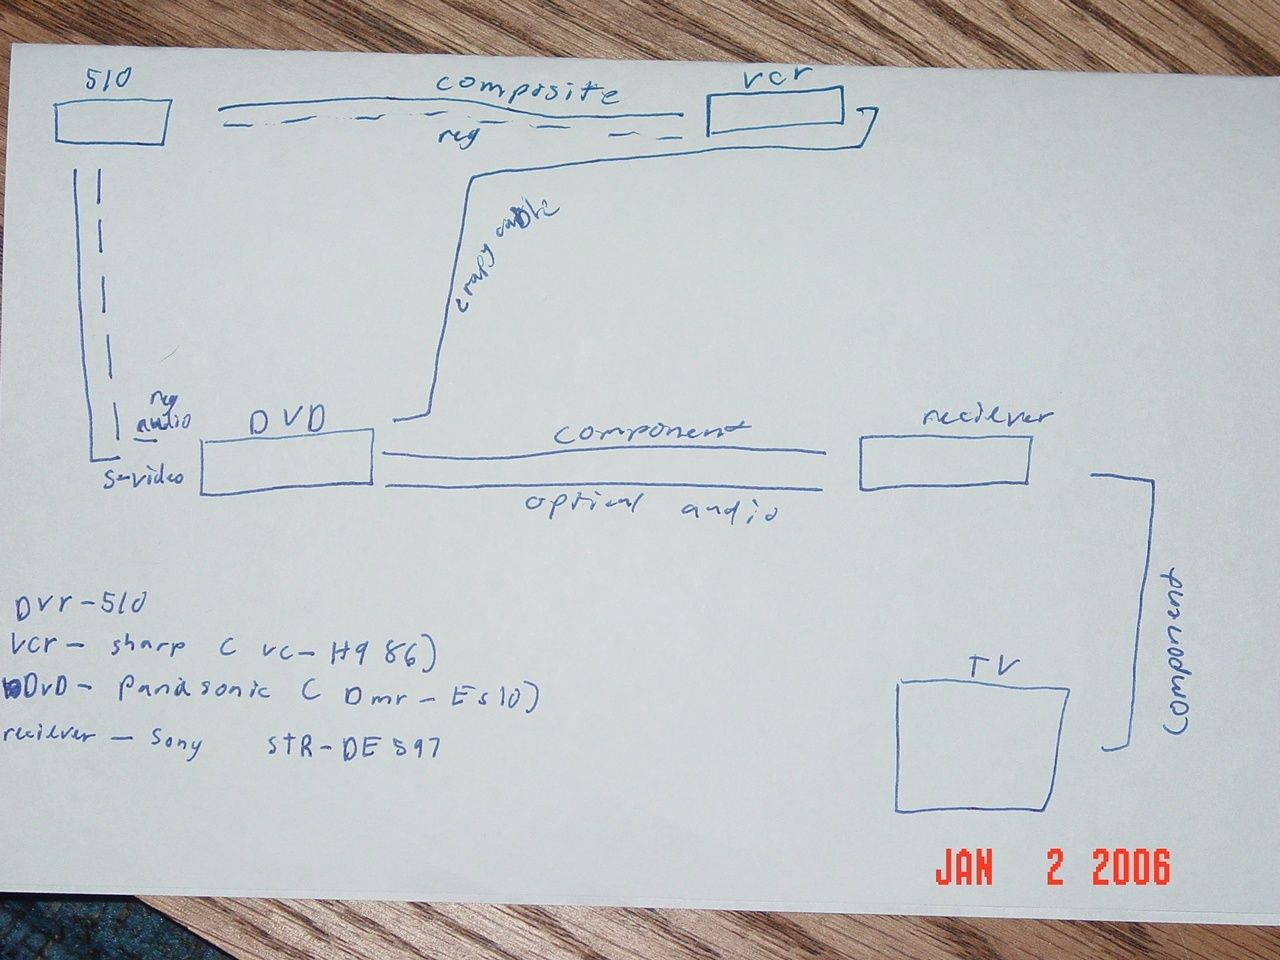 510
composite
vcr
reg
crapy cable
reg
audio
DVD
component
reciever
s-video
optical audio
component
Dvr-510
TV
vcr- sharp ( vc-H986)
DvD- panasonic ( Dmr-Es10)
reciever - Sony STR-DE597
JAN 2 2006